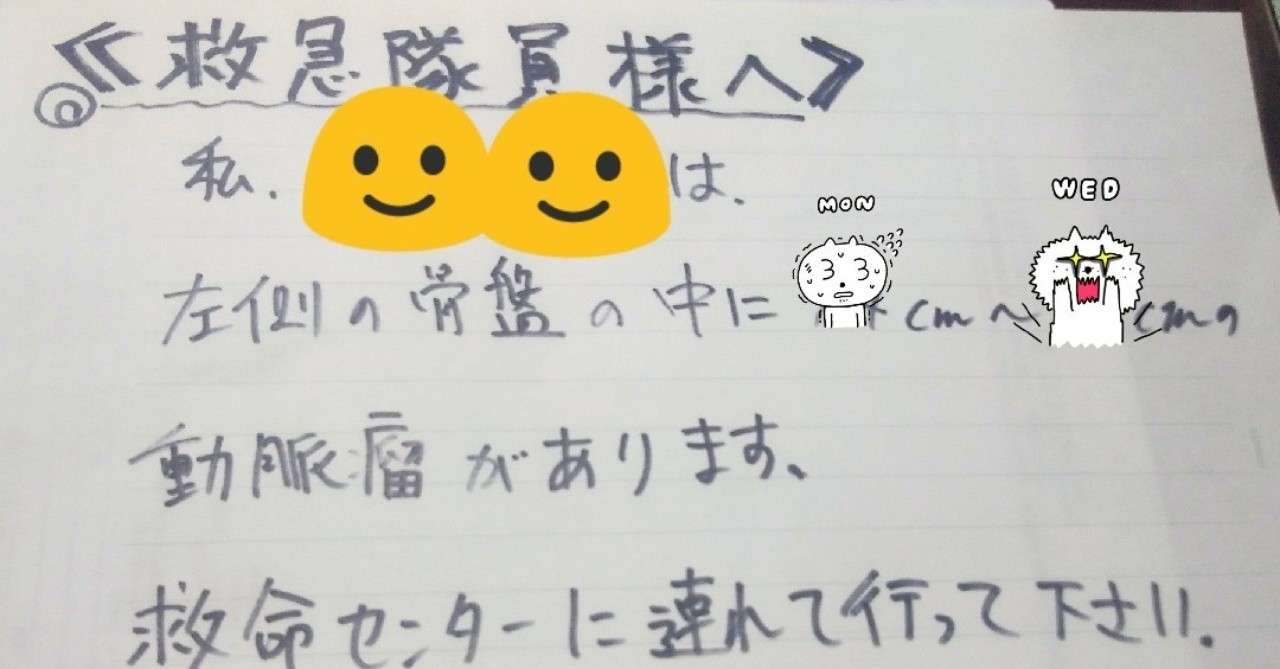 ≪救急隊員様へ≫
私、は、
MON
WED
左側の骨盤の中にcm〜cmの
動脈瘤があります、
救命センターに連れて行って下さい.